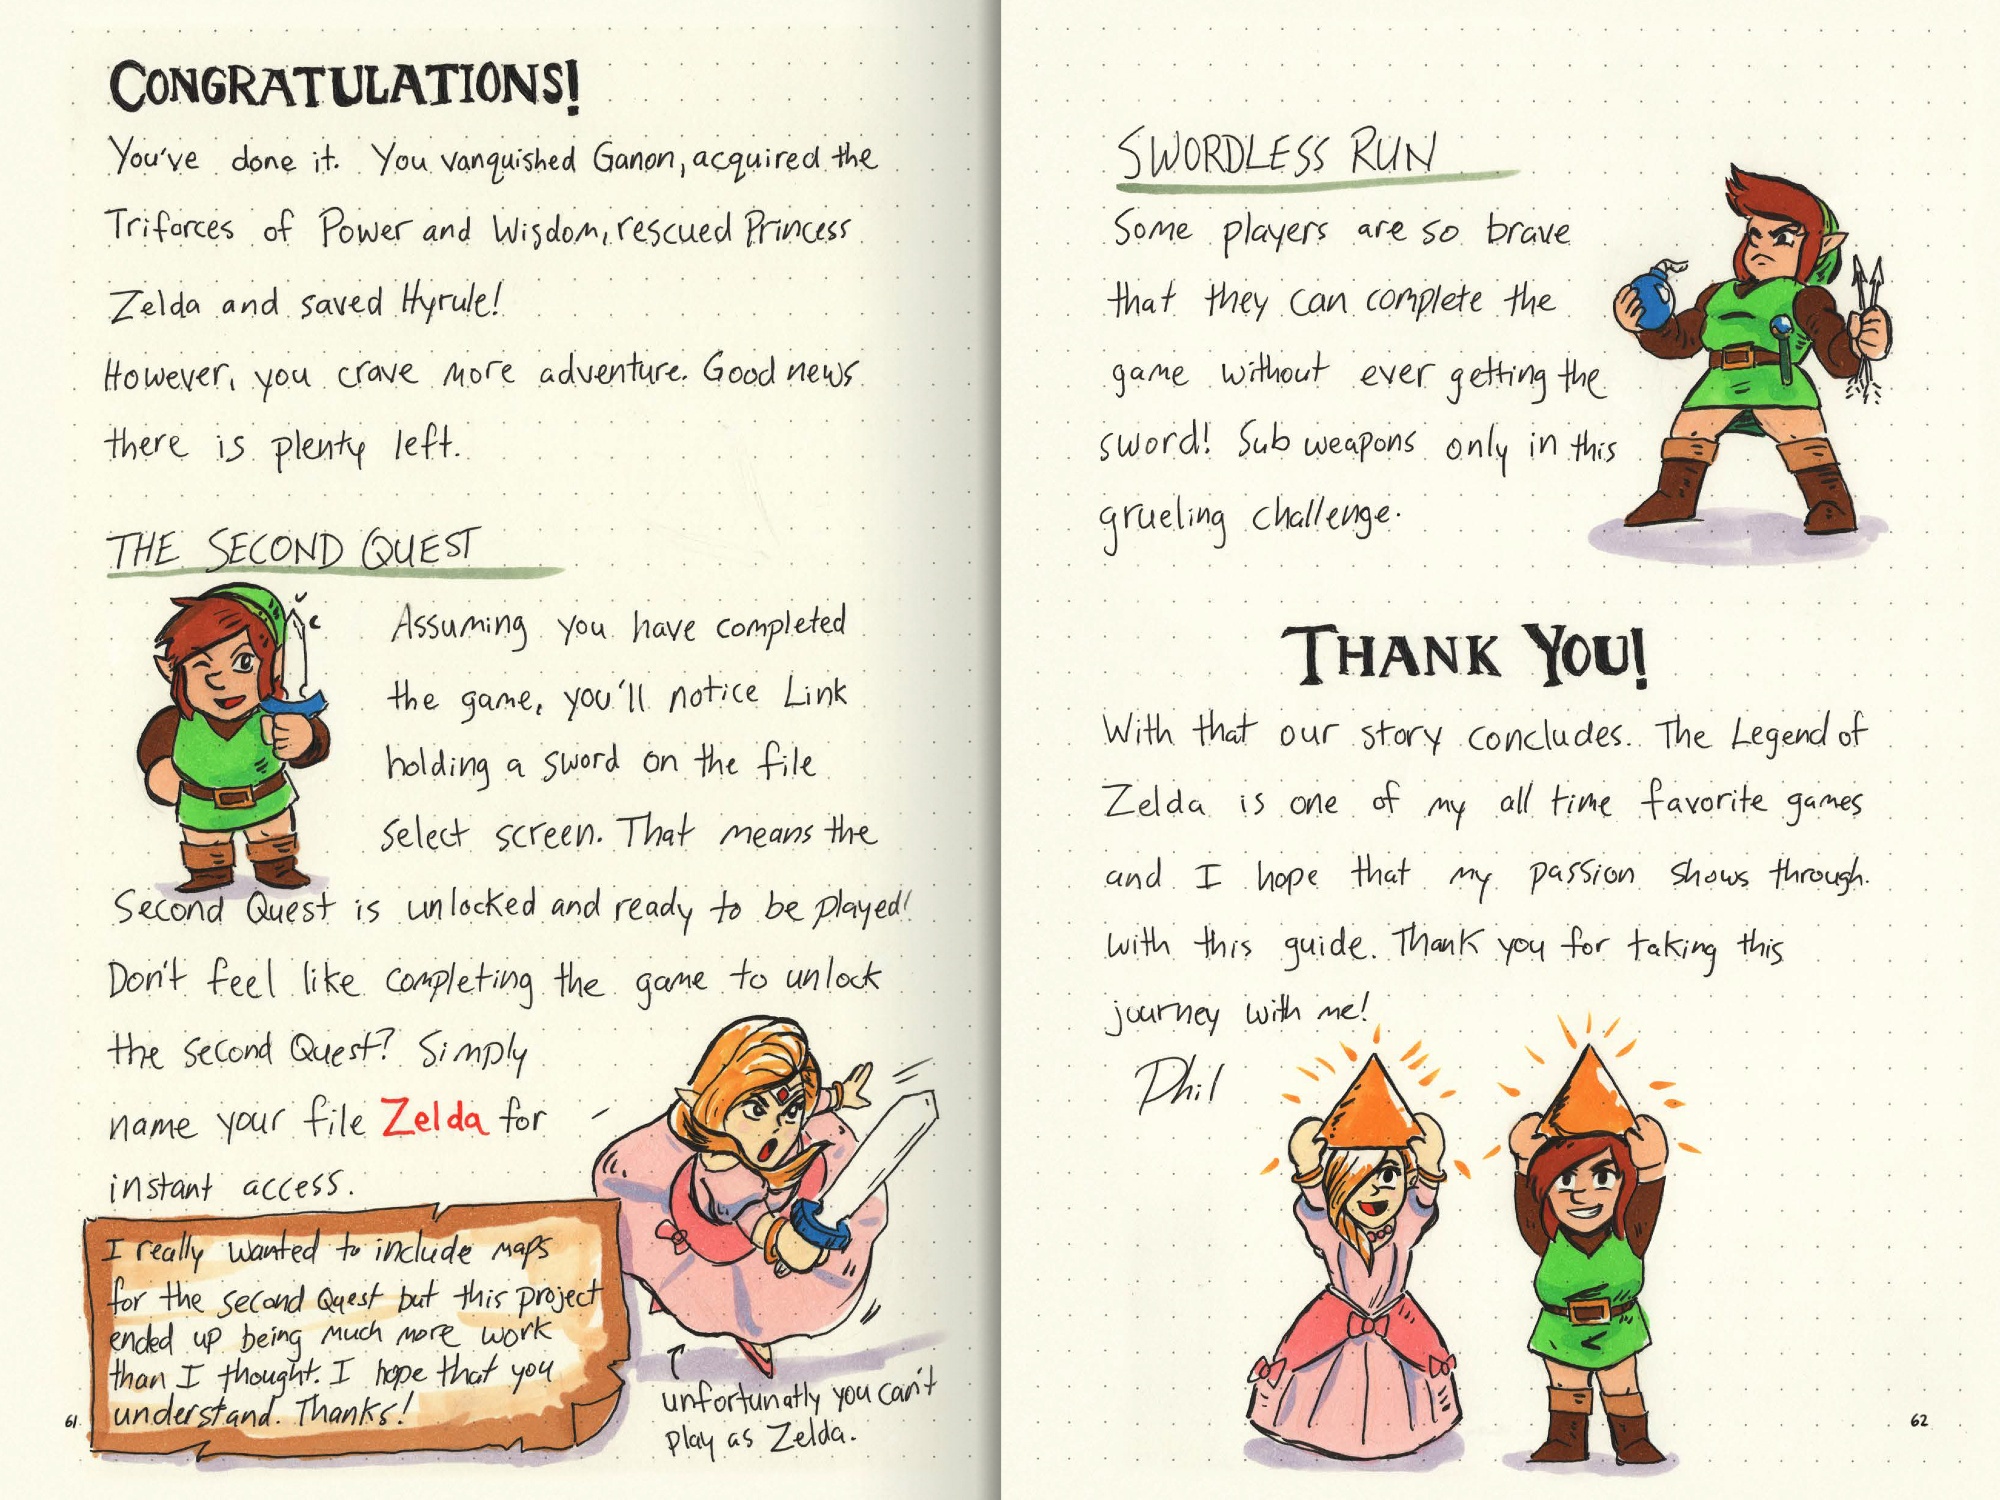 CONGRATULATIONS!
You've done it. You vanquished Ganon, acquired the
Triforces of Power and Wisdom, rescued Princess
Zelda and saved Hyrule!
However, you crave more adventure. Good news
there is plenty left.
THE SECOND QUEST
Assuming you have completed
the game, you'll notice Link
holding a sword on the file
select screen. That means the
Second Quest is unlocked and ready to be played!
Don't feel like completing the game to unlock
the second Quest? Simply
name your file Zelda for
instant access.
I really wanted to include maps
for the second Quest but this project
ended up being much more work
than I thought. I hope that you
understand. Thanks!
unfortunatly you can't
play as Zelda.
61
SWORDLESS RUN
Some players are so brave
that they can complete the
game without ever getting the
sword! Sub weapons only in this
grueling challenge.
THANK YOU!
With that our story concludes. The Legend of
Zelda is one of my all time favorite games
and I hope that my passion shows through
with this guide. Thank you for taking this
journey with me!
Phil
62